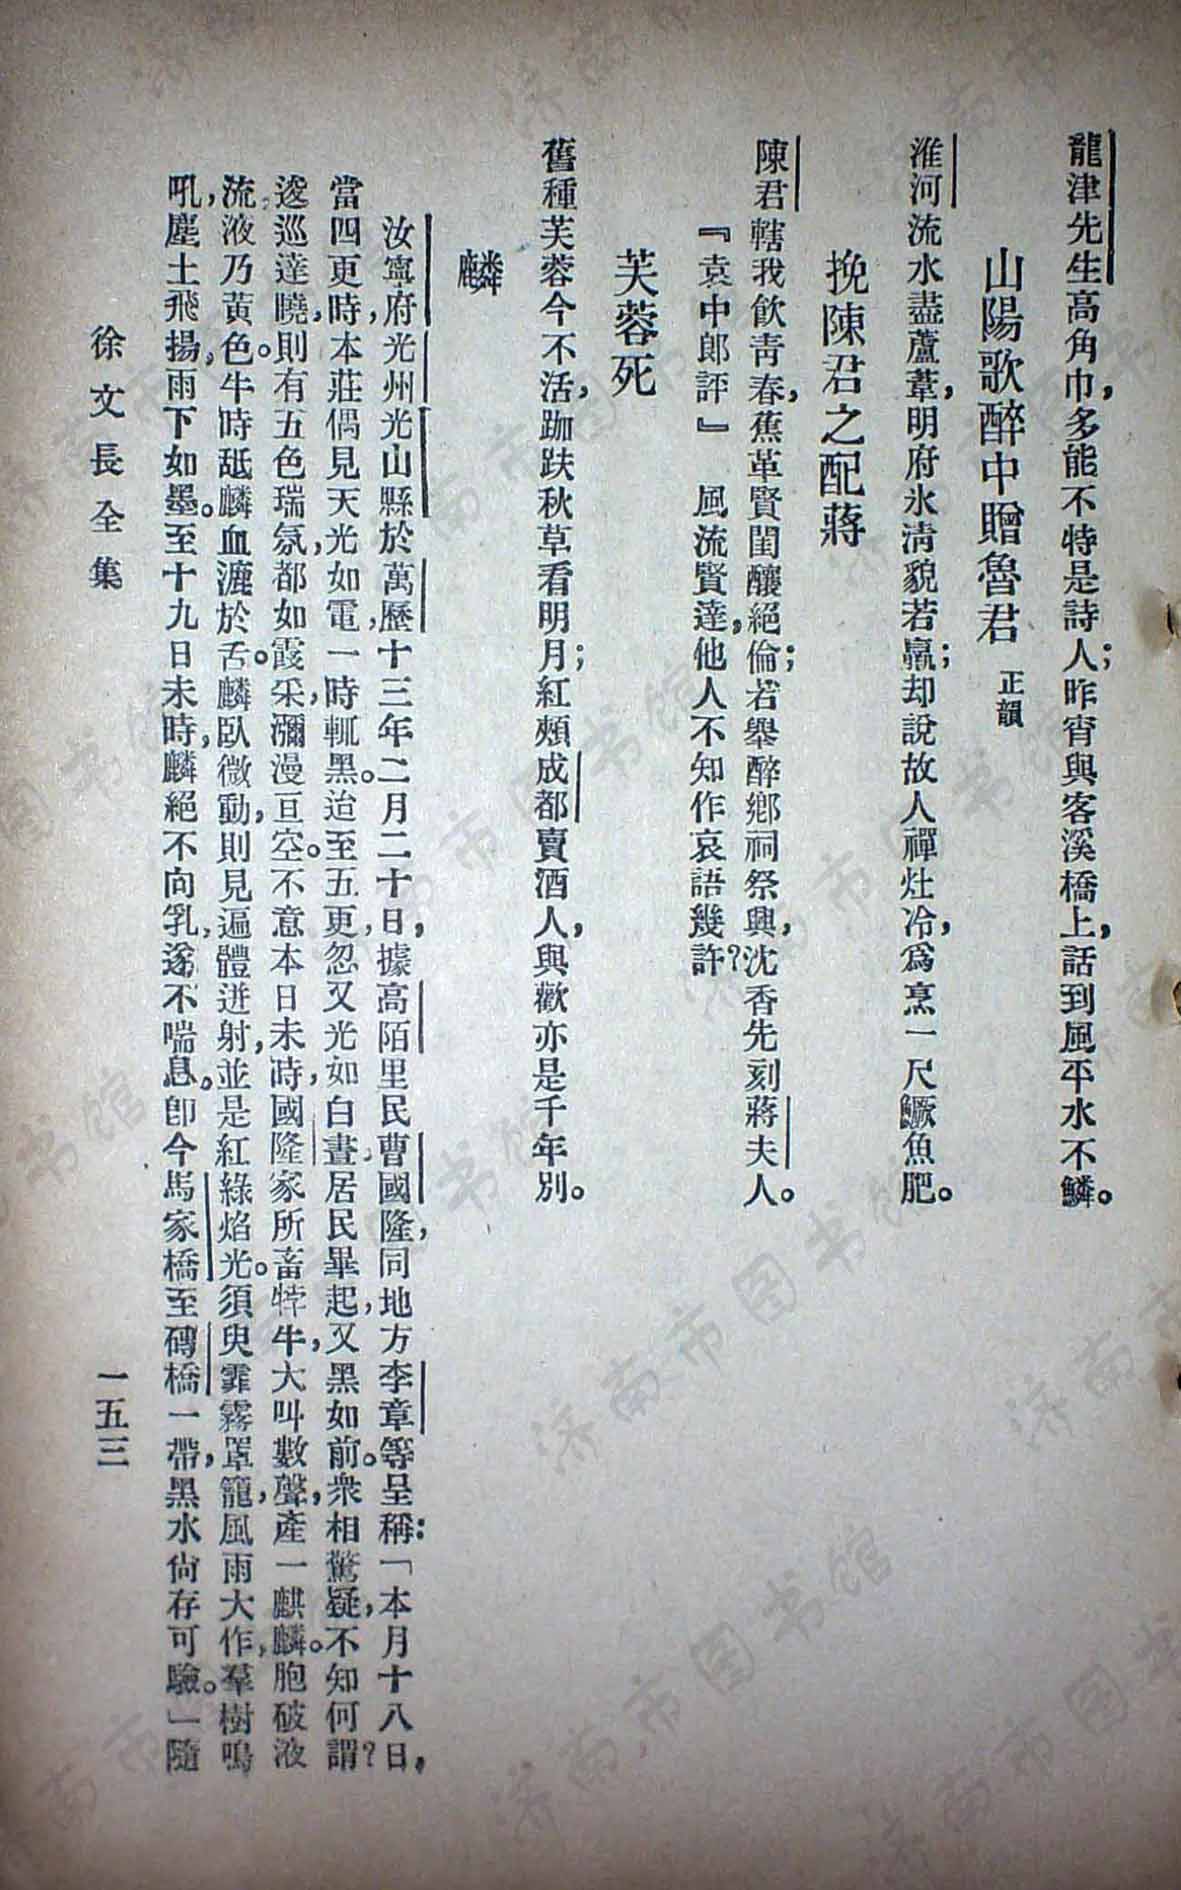 龍津先生高角巾，多能不特是詩人；昨宵與客溪橋上，話到風平水不鱗。
山陽歌醉中贈魯君 正韻
淮河流水盡蘆葦，明府氷清貌若羸；却說故人禪灶冷，爲烹一尺鱖魚肥。
挽陳君之配蔣
陳君轄我飲青春，蕉葉賢閨釀絕倫；若舉醉鄉祠祭興，沈香先刻蔣夫人。
『袁中郎評』 風流賢達，他人不知作哀語幾許？
芙蓉死
舊種芙蓉今不活，跏趺秋草看明月；紅頰成都賣酒人，與歡亦是千年別。
麟
汝寧府，光州光山縣於萬歷十三年二月二十日，據高陌里民曹國隆，同地方李章等呈稱：「本月十八日，
當四更時，本莊偶見天光如電，一時輒黑。迨至五更，忽又光如白晝，居民畢起，又黑如前。衆相驚疑，不知何謂？
逡巡達曉，則有五色瑞氛，都如霞采，瀰漫亘空。不意本日未時，國隆家所畜牸牛，大叫數聲，產一麒麟。胞破液
流，液乃黃色。牛時舐麟血漉於舌。麟臥微動，則見遍體迸射，並是紅綠焰光。須臾霏霧罩籠，風雨大作，羣樹鳴
吼，塵土飛揚，雨下如墨。至十九日未時，麟絕不向乳，遂不喘息。卽今馬家橋至磚橋一帶，黑水尙存可驗。」隨
徐文長全集
一五三
济南市图书馆